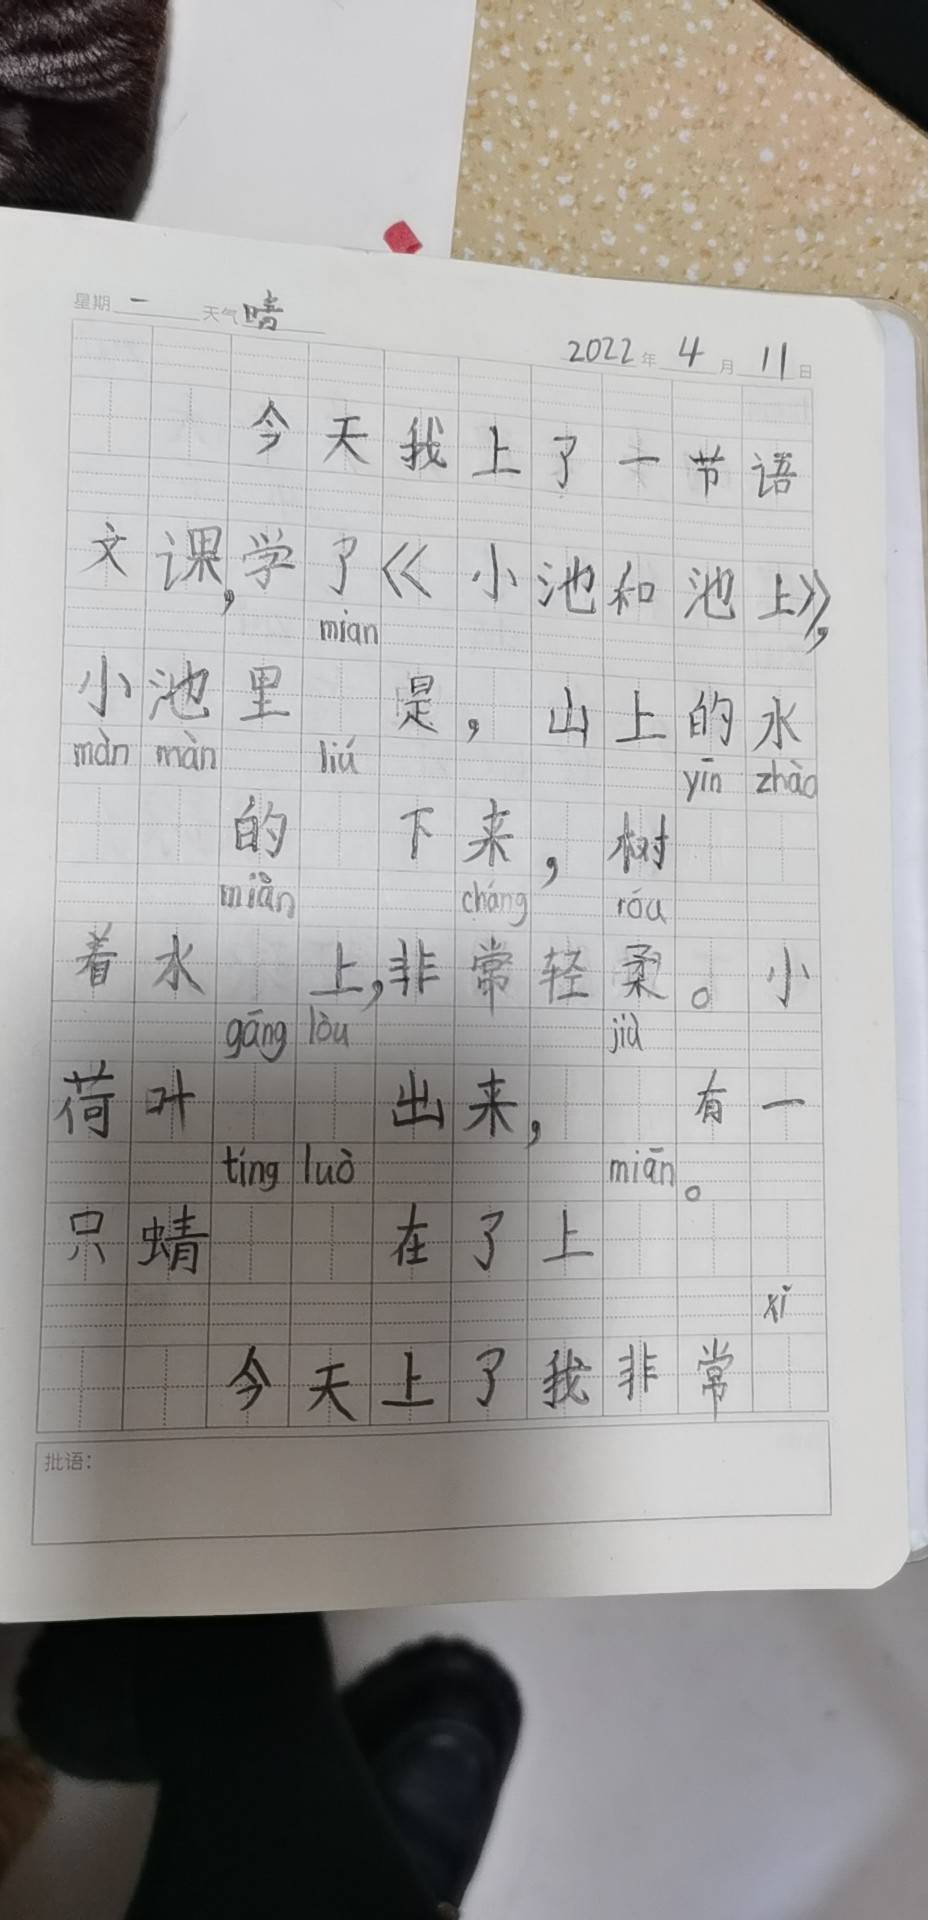 星期 一 天气 晴
2022 年 4 月 11 日
今天我上了一节语
文课,学了《小池和池上》,
mian
小池里 是,山上的水
màn màn liú yīn zhào
的 下来,树
miàn cháng róu
着水 上,非常轻柔。小
gāng lòu jiù
荷叶 出来, 有一
tíng luò miān。
只蜻 在了上
xǐ
今天上了我非常
批语: